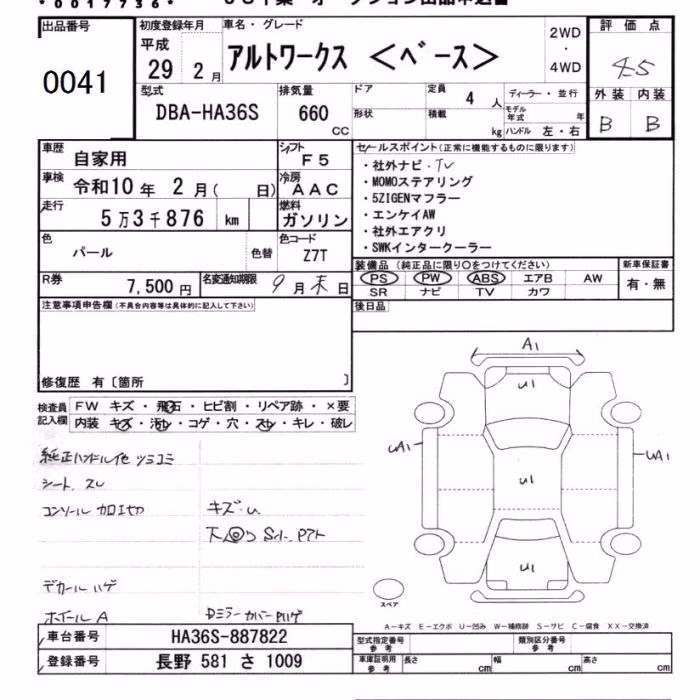 出品番号
0041
初度登録年月
平成
29 年 2 月
車名・グレード
アルトワークス <ベース>
2WD
・
4WD
評価点
4.5
外装 内装
B B
型式
DBA-HA36S
排気量
660 CC
ドア
形状
定員 4 人
積載 kg
ディーラー・並行
モデル年式 年
ハンドル 左・右
車歴
自家用
シフト
F5
車検
令和10 年 2 月( 日)
冷房
AAC
走行
5万3千876 km
燃料
ガソリン
色
パール
色替
色コード
Z7T
R券
7,500 円
名変通知期限
9 月 末 日
セールスポイント(正常に機能するものに限ります)
・社外ナビ・TV
・MOMOステアリング
・5ZIGENマフラー
・エンケイAW
・社外エアクリ
・SWKインタークーラー
装備品 (純正品に限り○をつけてください)
PS PW ABS エアB AW
SR ナビ TV カワ
新車保証書
有・無
後日品
注意事項申告欄(不具合内容等は具体的に記入して下さい)
修復歴 有〔箇所 〕
検査員
記入欄
FW キズ・飛石・ヒビ割・リペア跡・×要
内装 キズ・汚レ・コゲ・穴・スレ・キレ・破レ
純正ハンドル他 ツミコミ
シート スレ
コンソール カロエヤカ
キズ・U
下回りSイ.
デカールハゲ
ホイールA
Dミラーカバー
A1
U1
UA1
U1
UA1
U1
スペア
A-キズ E-エクボ U-凹み W-補修跡 S-サビ C-腐食 XX-交換済
車台番号
HA36S-887822
登録番号
長野 581 さ 1009
型式指定番号
参考
類別区分番号
参考
車庫証明用
参考
長さ cm
幅 cm
高さ cm